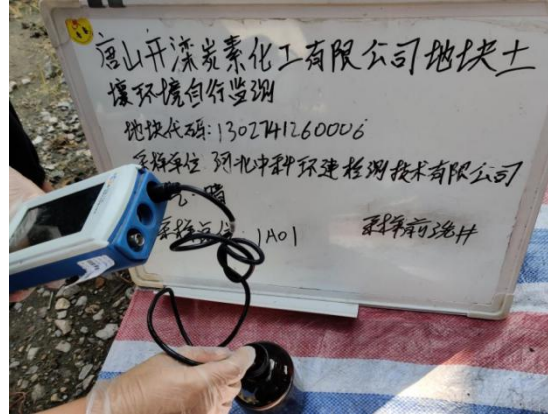 唐山开滦炭素化工有限公司地块土
壤环境自行监测
地块代码:1302741260006
采样单位:河北中科环建检测技术有限公司
晴
采样点位:1A01 采样前洗井